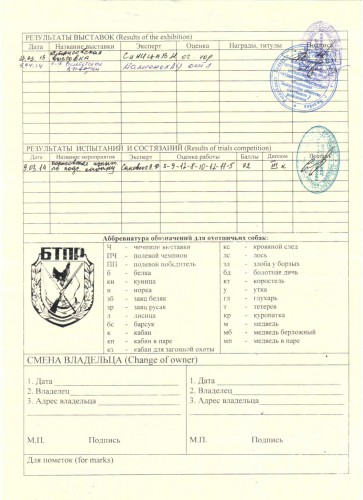 РЕЗУЛЬТАТЫ ВЫСТАВОК (Results of the exhibition)
Дата Название выставки Эксперт Оценка Награды, титулы Подпись
выставка Синицын В.Н.
РЕЗУЛЬТАТЫ ИСПЫТАНИЙ И СОСТЯЗАНИЙ (Results of trials competition)
Дата Название мероприятия Эксперт Оценка работы Баллы Диплом Подпись
9.03.14 -9-12-8-10-12-11-5 72 III к
Аббревиатура обозначений для охотничьих собак:
Ч - чемпион выставки
ПЧ - полевой чемпион
ПП - полевой победитель
б - белка
кн - куница
н - норка
зб - заяц беляк
зр - заяц русак
л - лисица
бс - барсук
к - кабан
кп - кабан в паре
кз - кабан для загонной охоты
кс - кровяной след
лс - лось
зл - злоба у борзых
бд - болотная дичь
кт - коростель
у - утка
гл - глухарь
т - тетерев
кр - куропатка
м - медведь
мб - медведь берложный
мп - медведь в паре
БТПР
СМЕНА ВЛАДЕЛЬЦА (Change of owner)
1. Дата
2. Владелец
3. Адрес владельца
М.П. Подпись
1. Дата
2. Владелец
3. Адрес владельца
М.П. Подпись
Для пометок (for marks)